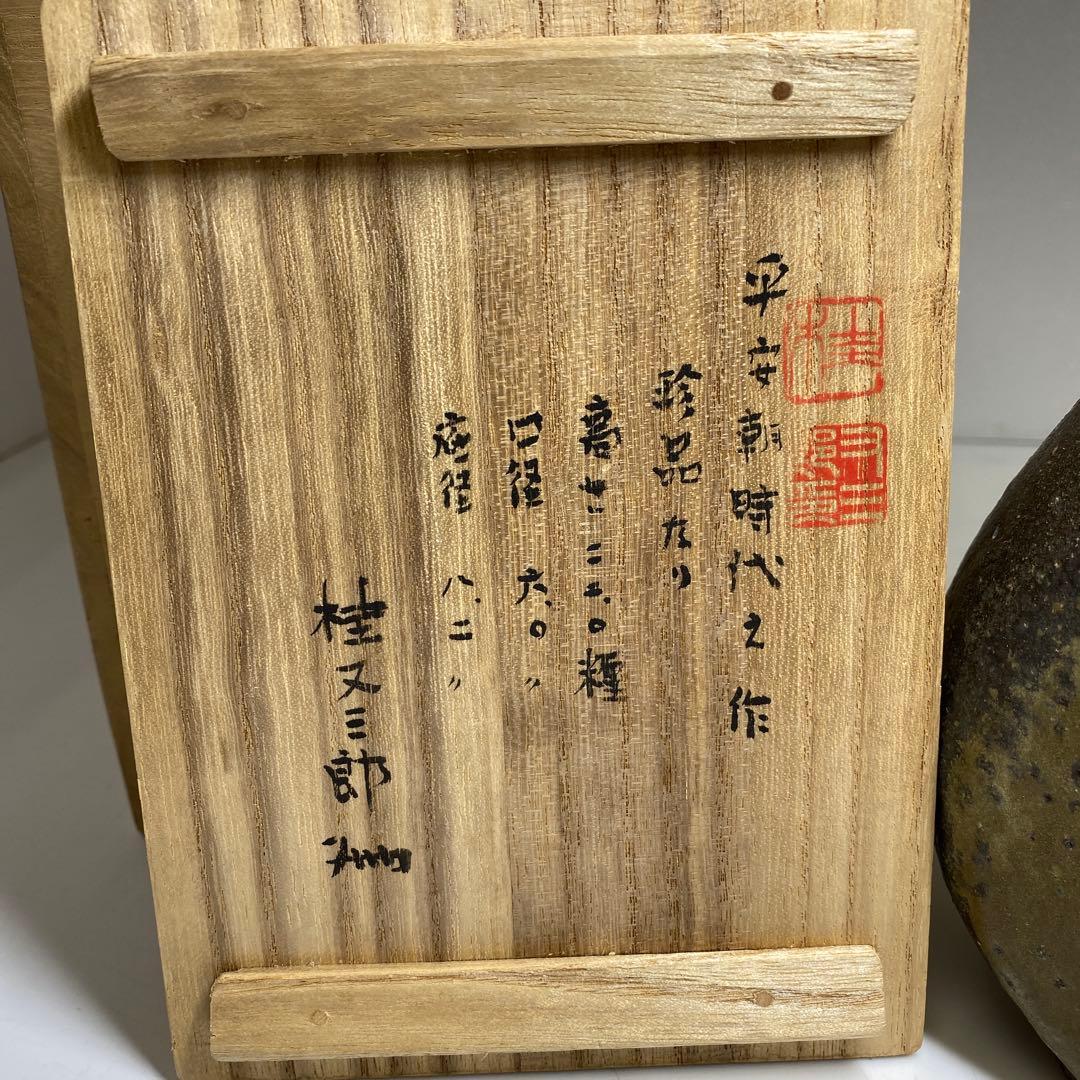 桂
又三郎
平安朝時代之作
珍品なり
高サ二二.〇糎
口径 六.〇 〃
底径 八.二 〃
桂又三郎